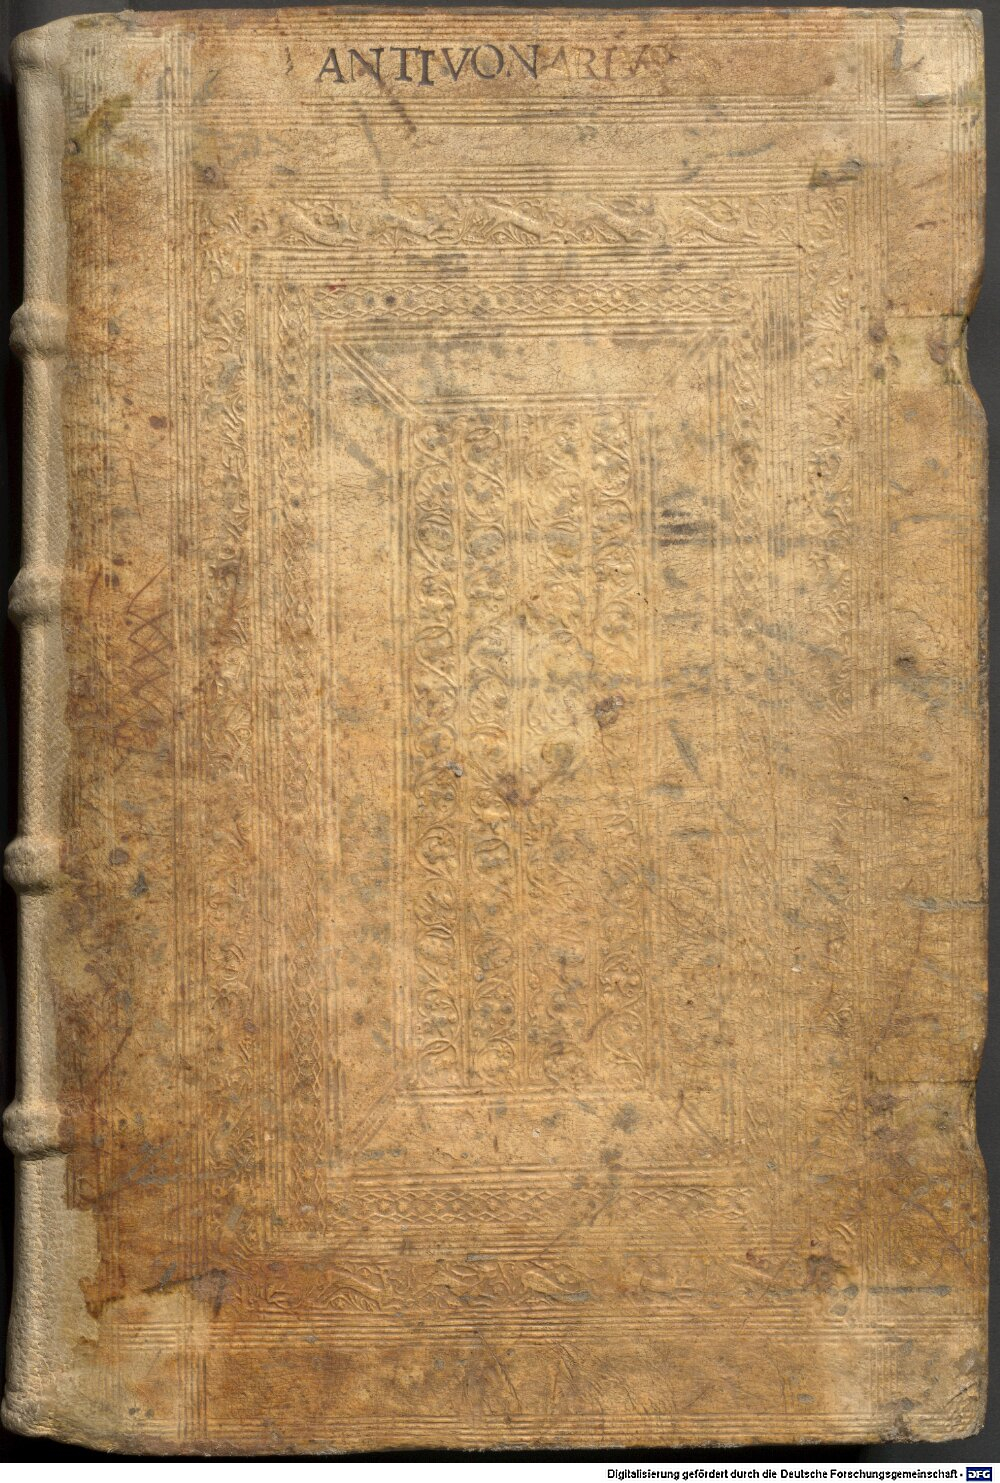 ANTIVONARIVS
Digitalisierung gefördert durch die Deutsche Forschungsgemeinschaft - DFG